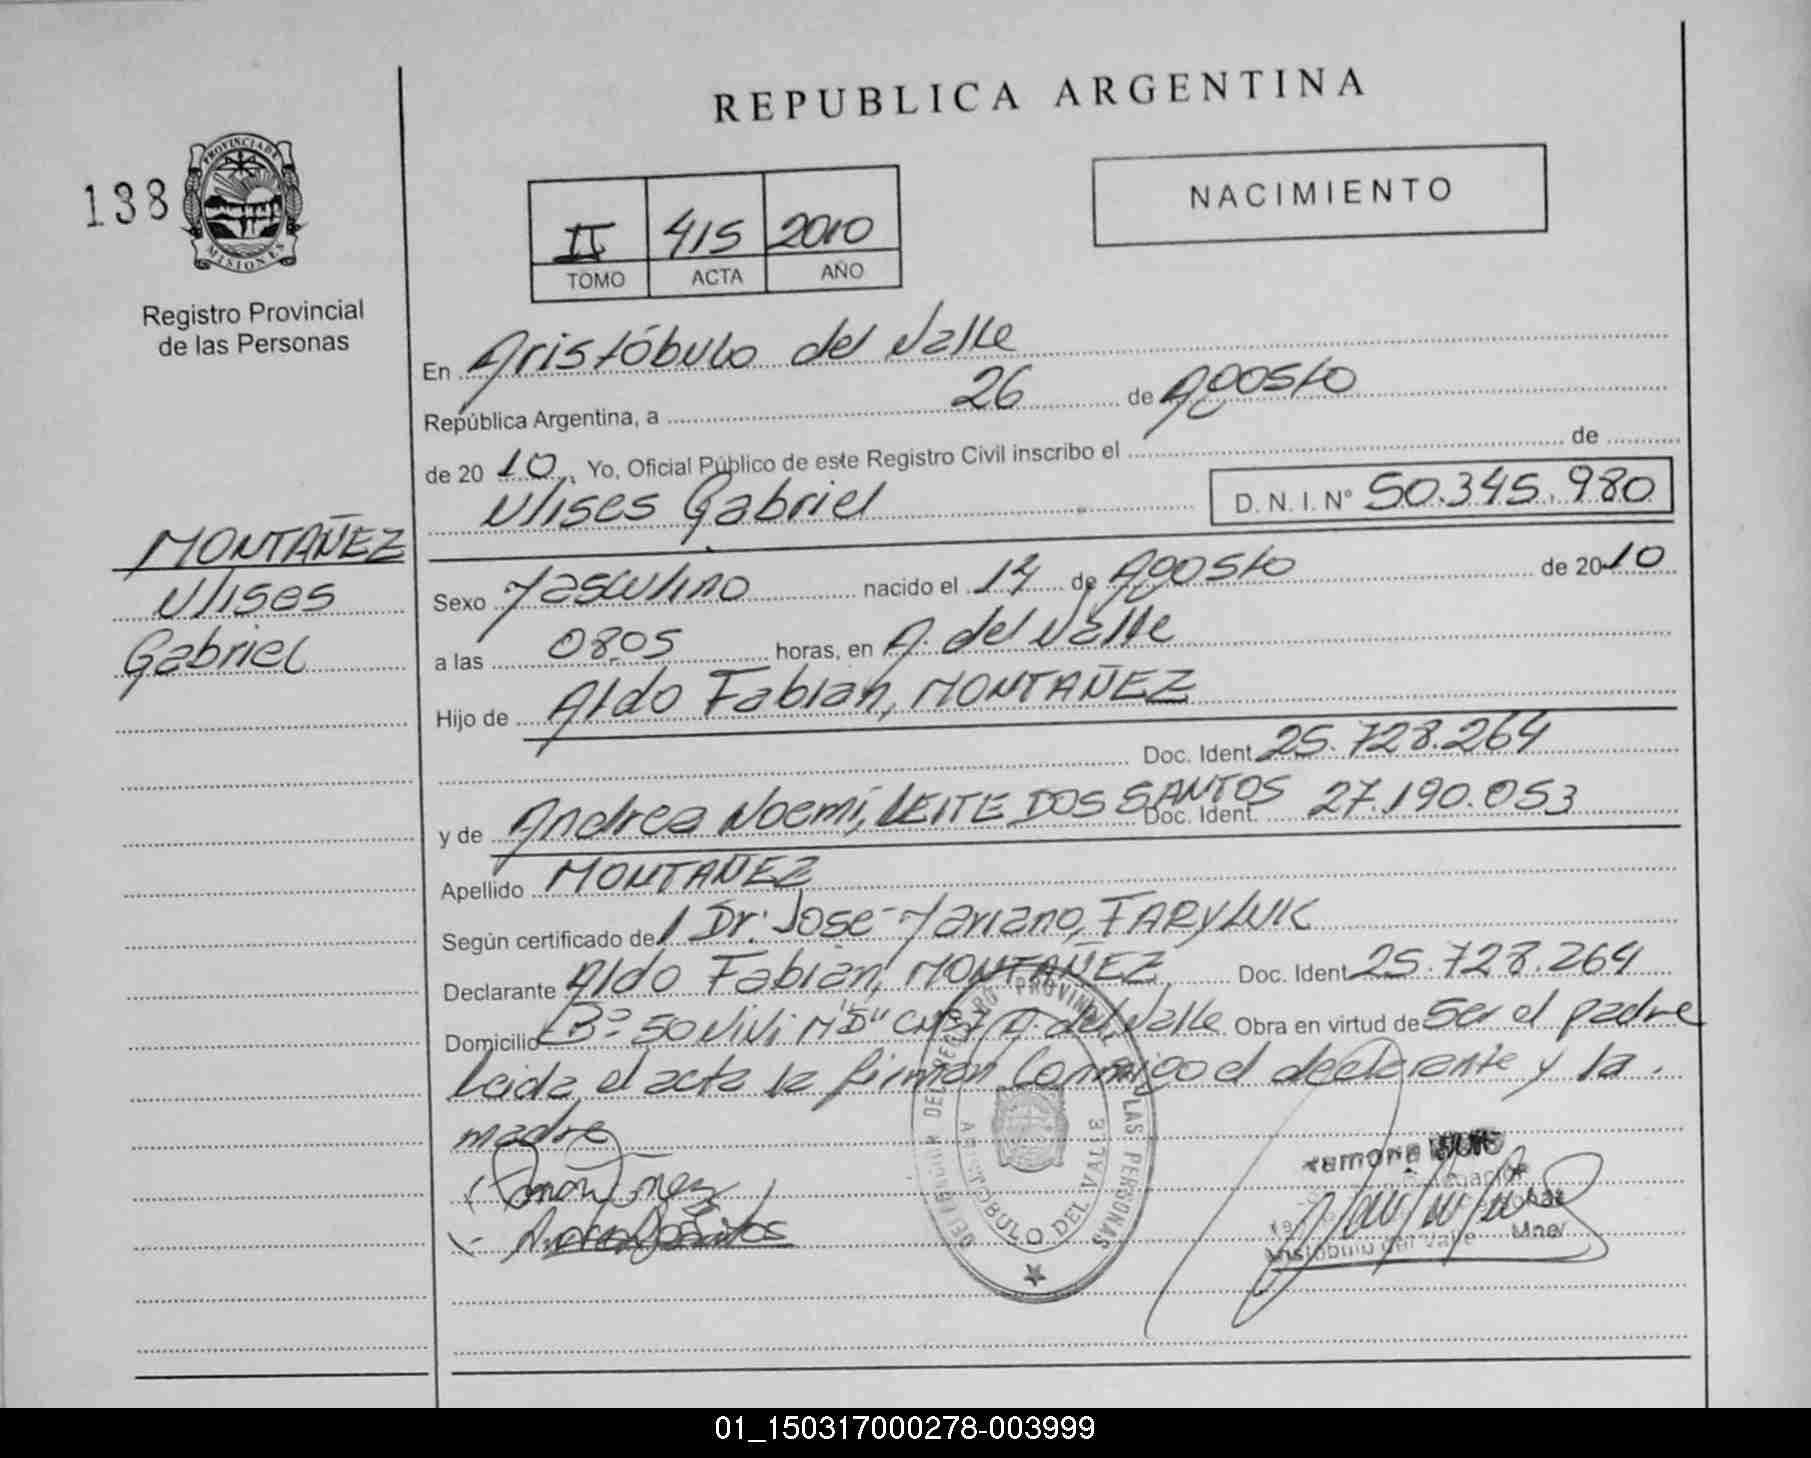 REPUBLICA ARGENTINA
138
PROVINCIA DE
MISIONES
Registro Provincial
de las Personas
II 415 2010
TOMO ACTA AÑO
NACIMIENTO
MONTAÑEZ
Ulises
Gabriel
En Aristóbulo del Valle
República Argentina, a 26 de Agosto
de 20 10, Yo, Oficial Público de este Registro Civil inscribo el de
Ulises Gabriel D. N. I. Nº 50.345.980
Sexo Masculino nacido el 14 de Agosto de 20 10
a las 08.05 horas, en A. del Valle
Hijo de Aldo Fabian, MONTAÑEZ
Doc. Ident. 25.728.264
y de Andrea Noemí, LEITE DOS SANTOS Doc. Ident. 27.190.053
Apellido MONTAÑEZ
Según certificado del Dr. Jose Mariano, FARYLUK
Declarante Aldo Fabian, MONTAÑEZ Doc. Ident. 25.728.264
Domicilio Bº 50 Vivi M "D" A. del Valle Obra en virtud de Ser el padre
Leida el acta la firman Conmigo el declarante y la
madre
DELEGACION DEL REGISTRO PROVINCIAL DE LAS PERSONAS
ARISTOBULO DEL VALLE
Ramona
Aristobulo del Valle Mnes
01_150317000278-003999